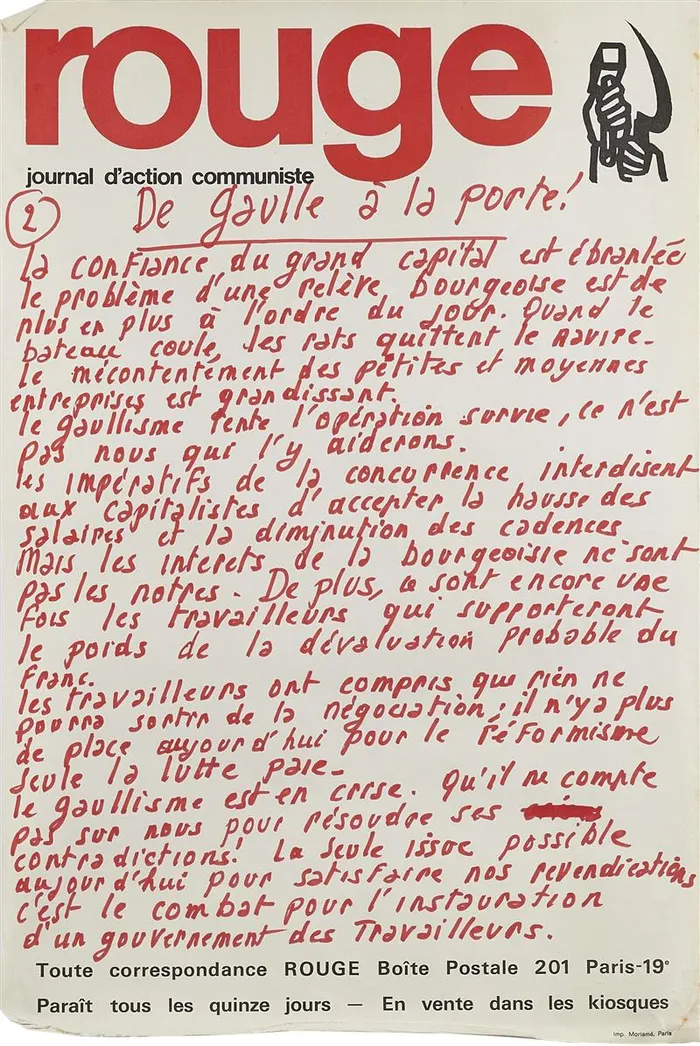 rouge
journal d'action communiste
2
De Gaulle à la porte!
la confiance du grand capital est ébranlée
le problème d'une relève bourgeoise est de
plus en plus à l'ordre du jour. Quand le
bateau coule, les rats quittent le navire.
le mécontentement des petites et moyennes
entreprises est grandissant.
le gaullisme tente l'opération survie, ce n'est
pas nous qui l'y aiderons.
les impératifs de la concurrence interdisent
aux capitalistes d'accepter la hausse des
salaires et la diminution des cadences
Mais les interets de la bourgeoisie ne sont
pas les notres. De plus, ce sont encore une
fois les travailleurs qui supporteront
le poids de la dévaluation probable du
Franc.
les travailleurs ont compris que rien ne
pourra sortir de la négociation; il n'y a plus
de place aujourd'hui pour le réformisme
seule la lutte paie.
le gaullisme est en crise. Qu'il ne compte
pas sur nous pour résoudre ses
contradictions! La seule issue possible
aujourd'hui pour satisfaire nos revendications
c'est le combat pour l'instauration
d'un gouvernement des Travailleurs.
Toute correspondance ROUGE Boîte Postale 201 Paris-19e
Paraît tous les quinze jours — En vente dans les kiosques
Imp. Moriamé, Paris